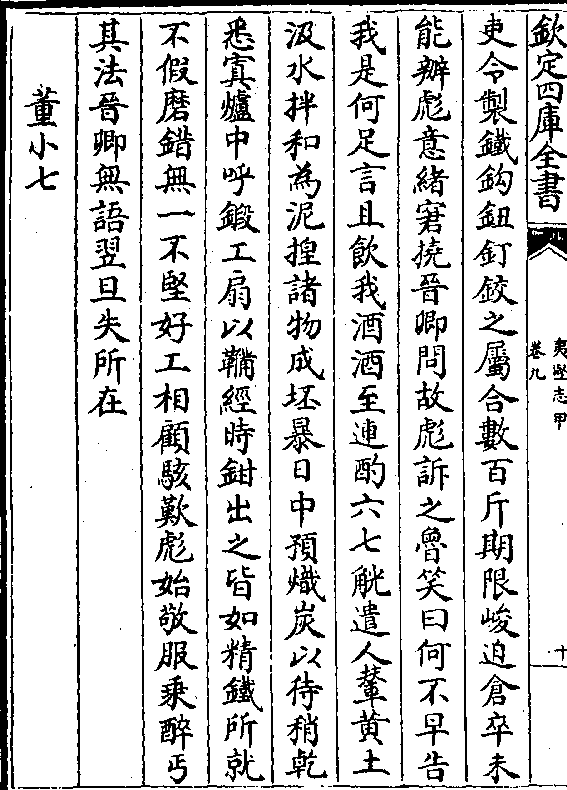 欽定四庫全書
夷堅志甲
卷九
十
吏令製鐵鈎鈕釘鉸之屬合數百斤期限峻迫倉卒未
能辦彪意緒窘撓晉卿問故彪訴之魯笑曰何不早告
我是何足言且飲我酒酒至連酌六七觥遣人輦黃土
汲水拌和為泥揑諸物成坯暴日中預熾炭以待稍乾
悉寘爐中呼鍛工扇以鞴經時鉗出之皆如精鐵所就
不假磨錯無一不堅好工相顧駭歎彪始敬服乘醉丐
其法晉卿無語翌旦失所在
董小七